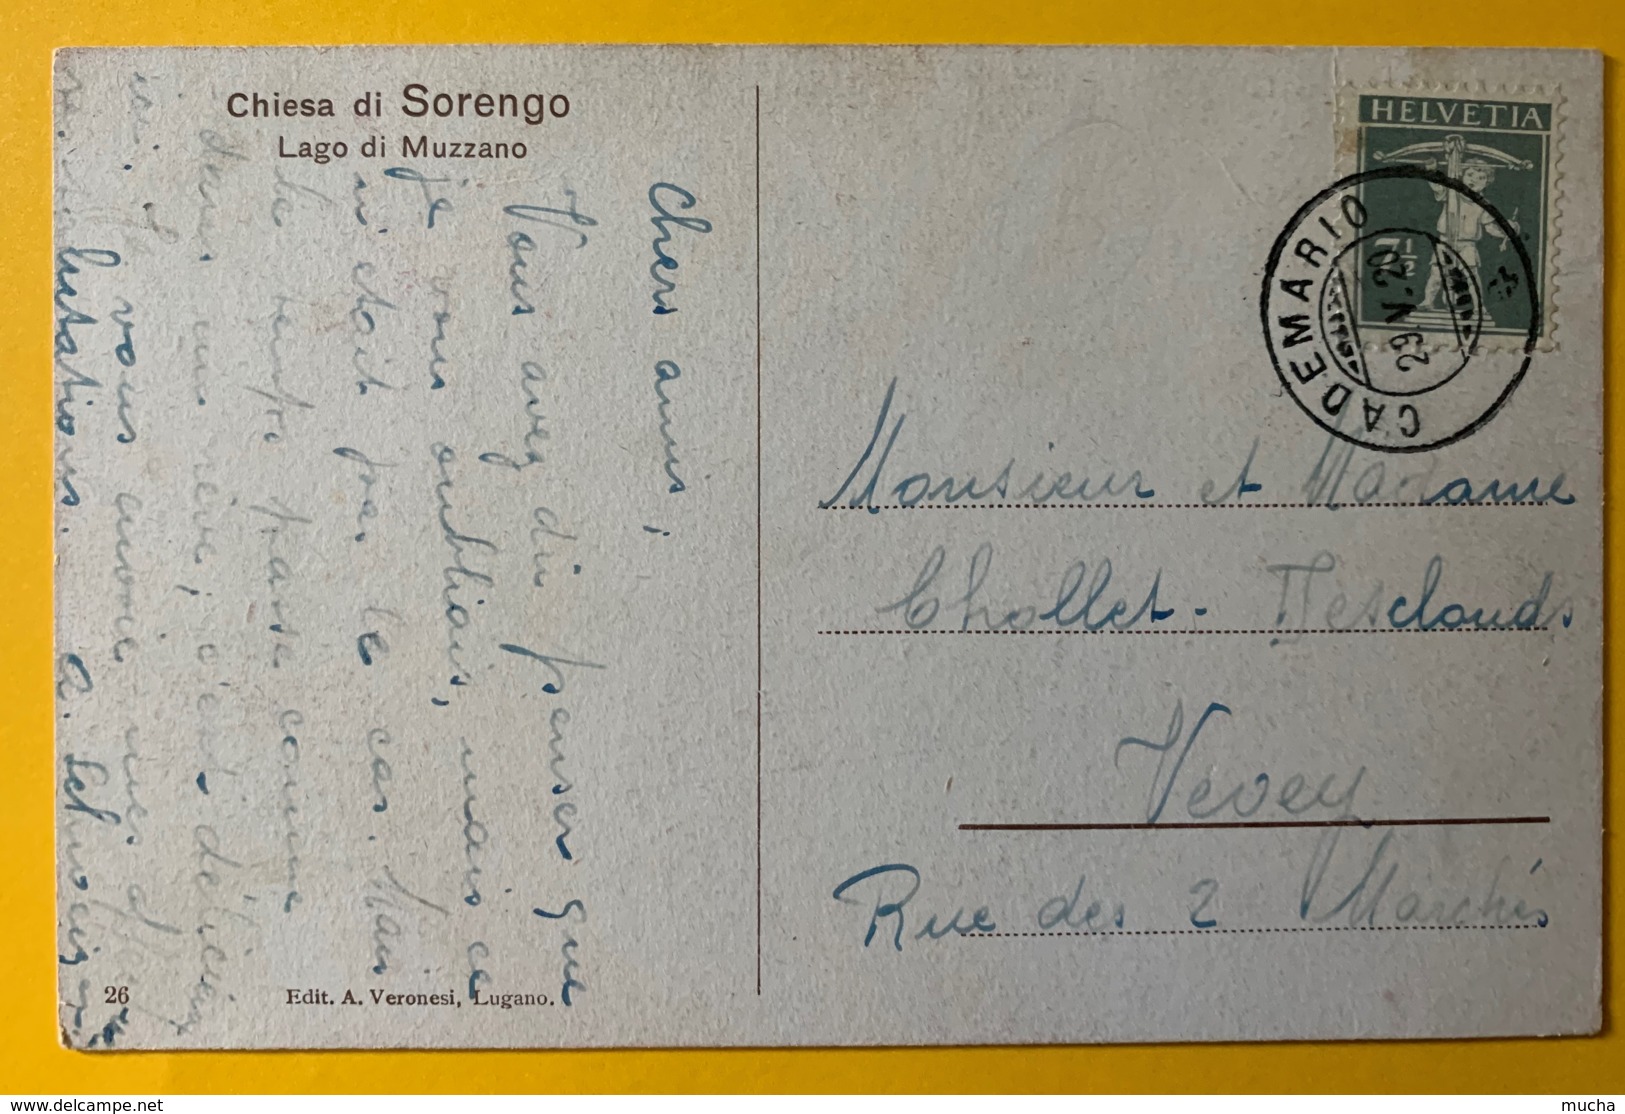 Chiesa di Sorengo
Lago di Muzzano
HELVETIA
7½
CADEMARIO
29.V.20
Chers amis,
Vous avez dû penser que
je vous oubliais, mais ce
n'était pas le cas. Mais
le temps passe comme
dans un rêve, c'est délicieux
ici. Je vous envoie mes
salutations. A.
Monsieur et Madame
Chollet - Desclouds
Vevey
Rue des 2 Marchés
26
Edit. A. Veronesi, Lugano.
www.delcampe.net
mucha